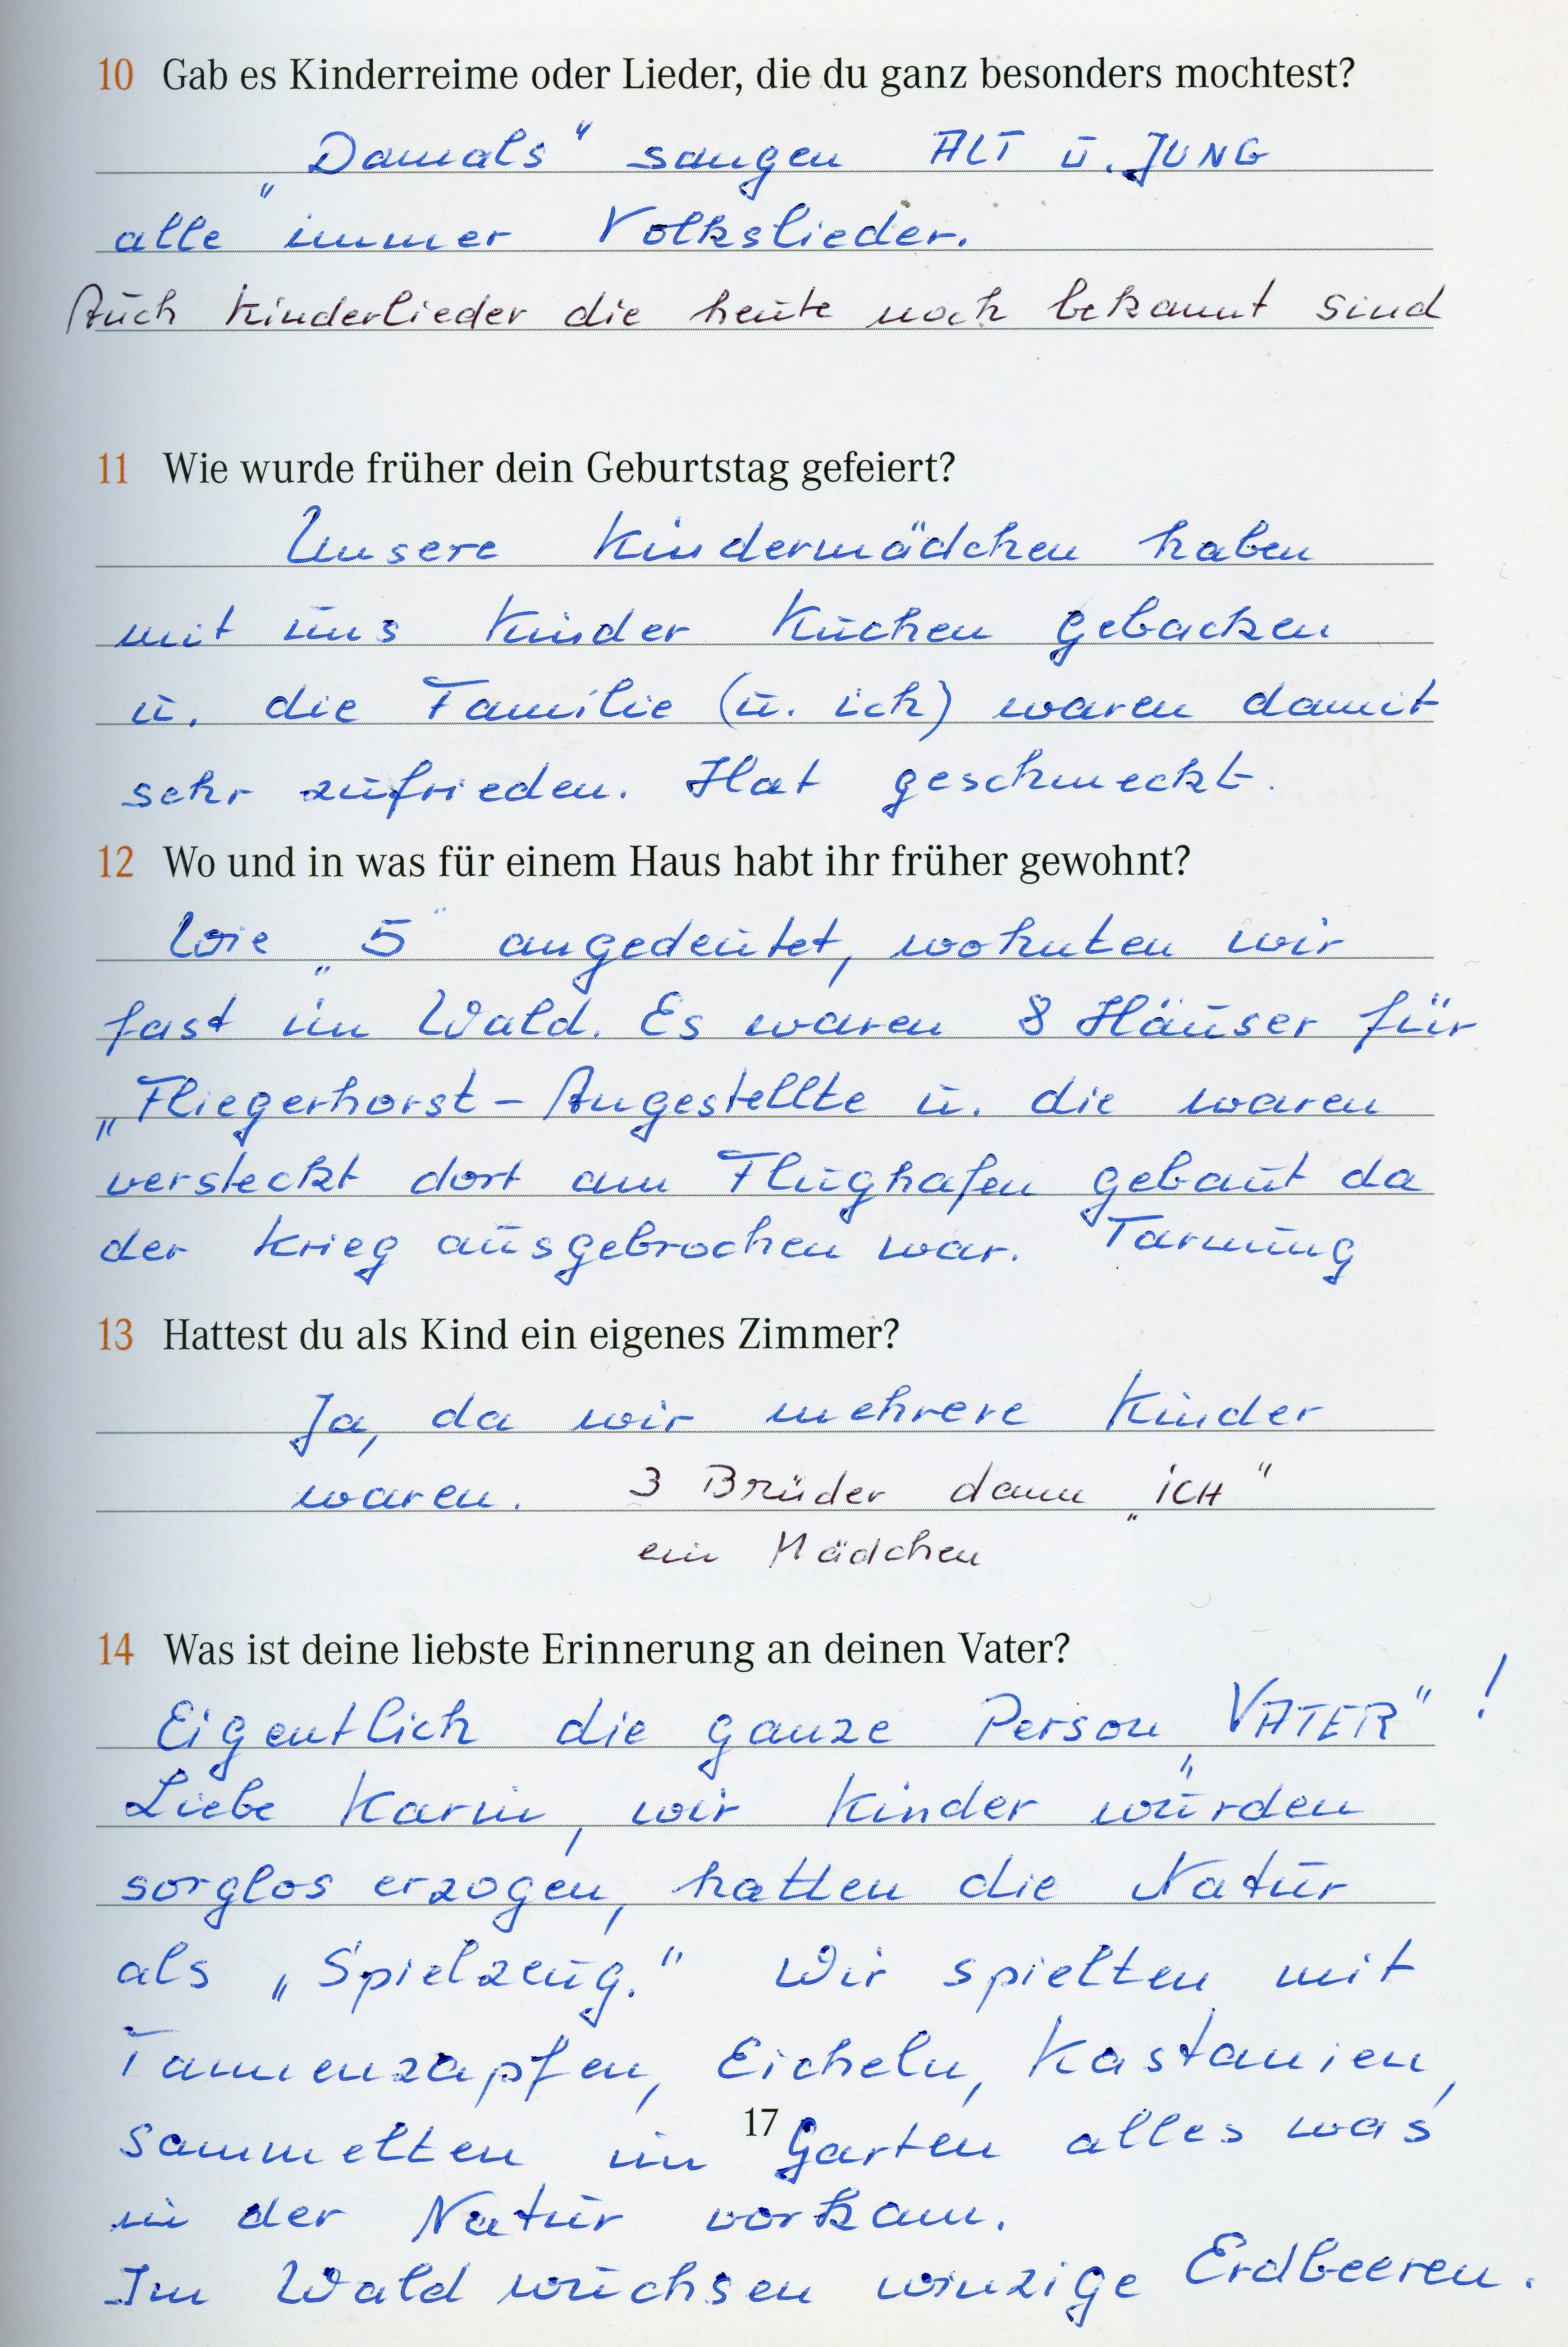 10 Gab es Kinderreime oder Lieder, die du ganz besonders mochtest?
„Damals“ sangen ALT u. JUNG
alle immer Volkslieder.
Auch Kinderlieder die heute noch bekannt sind
11 Wie wurde früher dein Geburtstag gefeiert?
Unsere Kindermädchen haben
mit uns Kinder Kuchen gebacken
u. die Familie (u. ich) waren damit
sehr zufrieden. Hat geschmeckt.
12 Wo und in was für einem Haus habt ihr früher gewohnt?
Wie „5“ angedeutet, wohnten wir
fast im Wald. Es waren 8 Häuser für
„Fliegerhorst - Angestellte u. die waren
versteckt dort am Flughafen gebaut da
der Krieg ausgebrochen war. Tarnung
13 Hattest du als Kind ein eigenes Zimmer?
Ja, da wir mehrere Kinder
waren. 3 Brüder dann „ICH“
ein Mädchen
14 Was ist deine liebste Erinnerung an deinen Vater?
Eigentlich die ganze Person „VATER“!
Liebe Karin, wir Kinder wurden
sorglos erzogen, hatten die Natur
als „Spielzeug.“ Wir spielten mit
Tannenzapfen, Eicheln, Kastanien,
sammelten im Garten alles was
17
in der Natur vorkam.
Im Wald wuchsen winzige Erdbeeren.